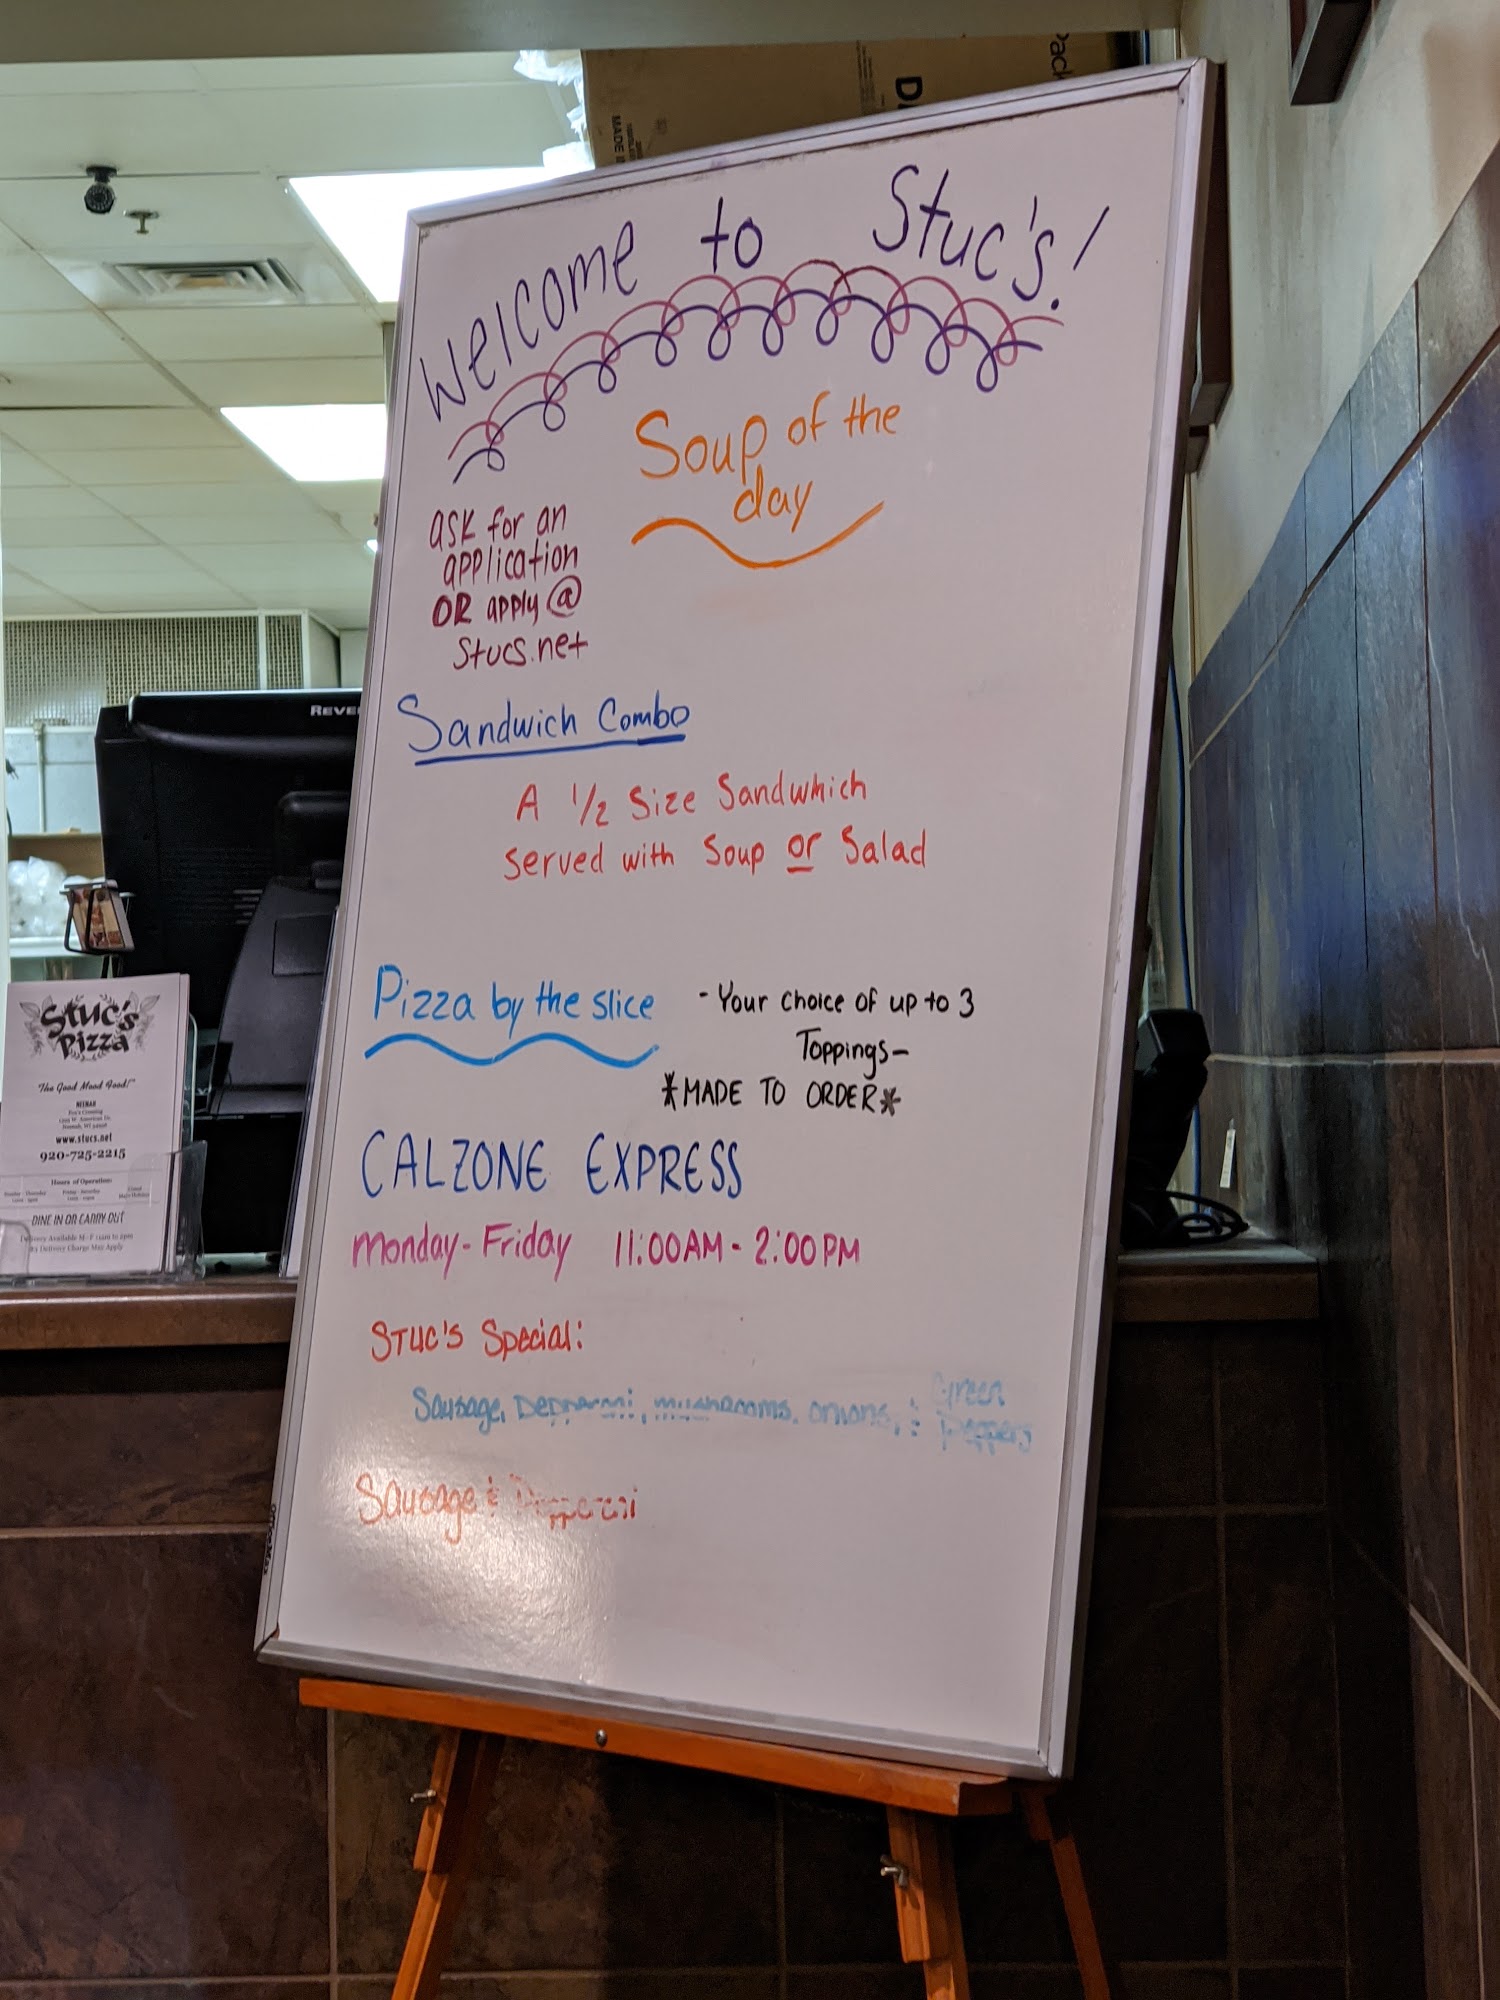 Welcome to Stuc's!
Soup of the
day
ASK for an
application
OR apply @
Stucs.net
Sandwich Combo
A 1/2 Size Sandwhich
Served with Soup or Salad
Pizza by the slice - Your choice of up to 3
Toppings-
*MADE TO ORDER*
CALZONE EXPRESS
Monday-Friday 11:00AM - 2:00PM
STUC'S Special:
Sausage, Pepperoni, mushrooms, onions, & Green
Peppers
Sausage & Pepperoni
REVE
Stuc's
Pizza
"The Good Mood Food!"
NEENAH
www.stucs.net
920-725-2215
Hours of Operation:
DINE IN OR CARRY OUT
Delivery Available M-F 11am to 2pm
$3 Delivery Charge May Apply
MADE
OfficeMax